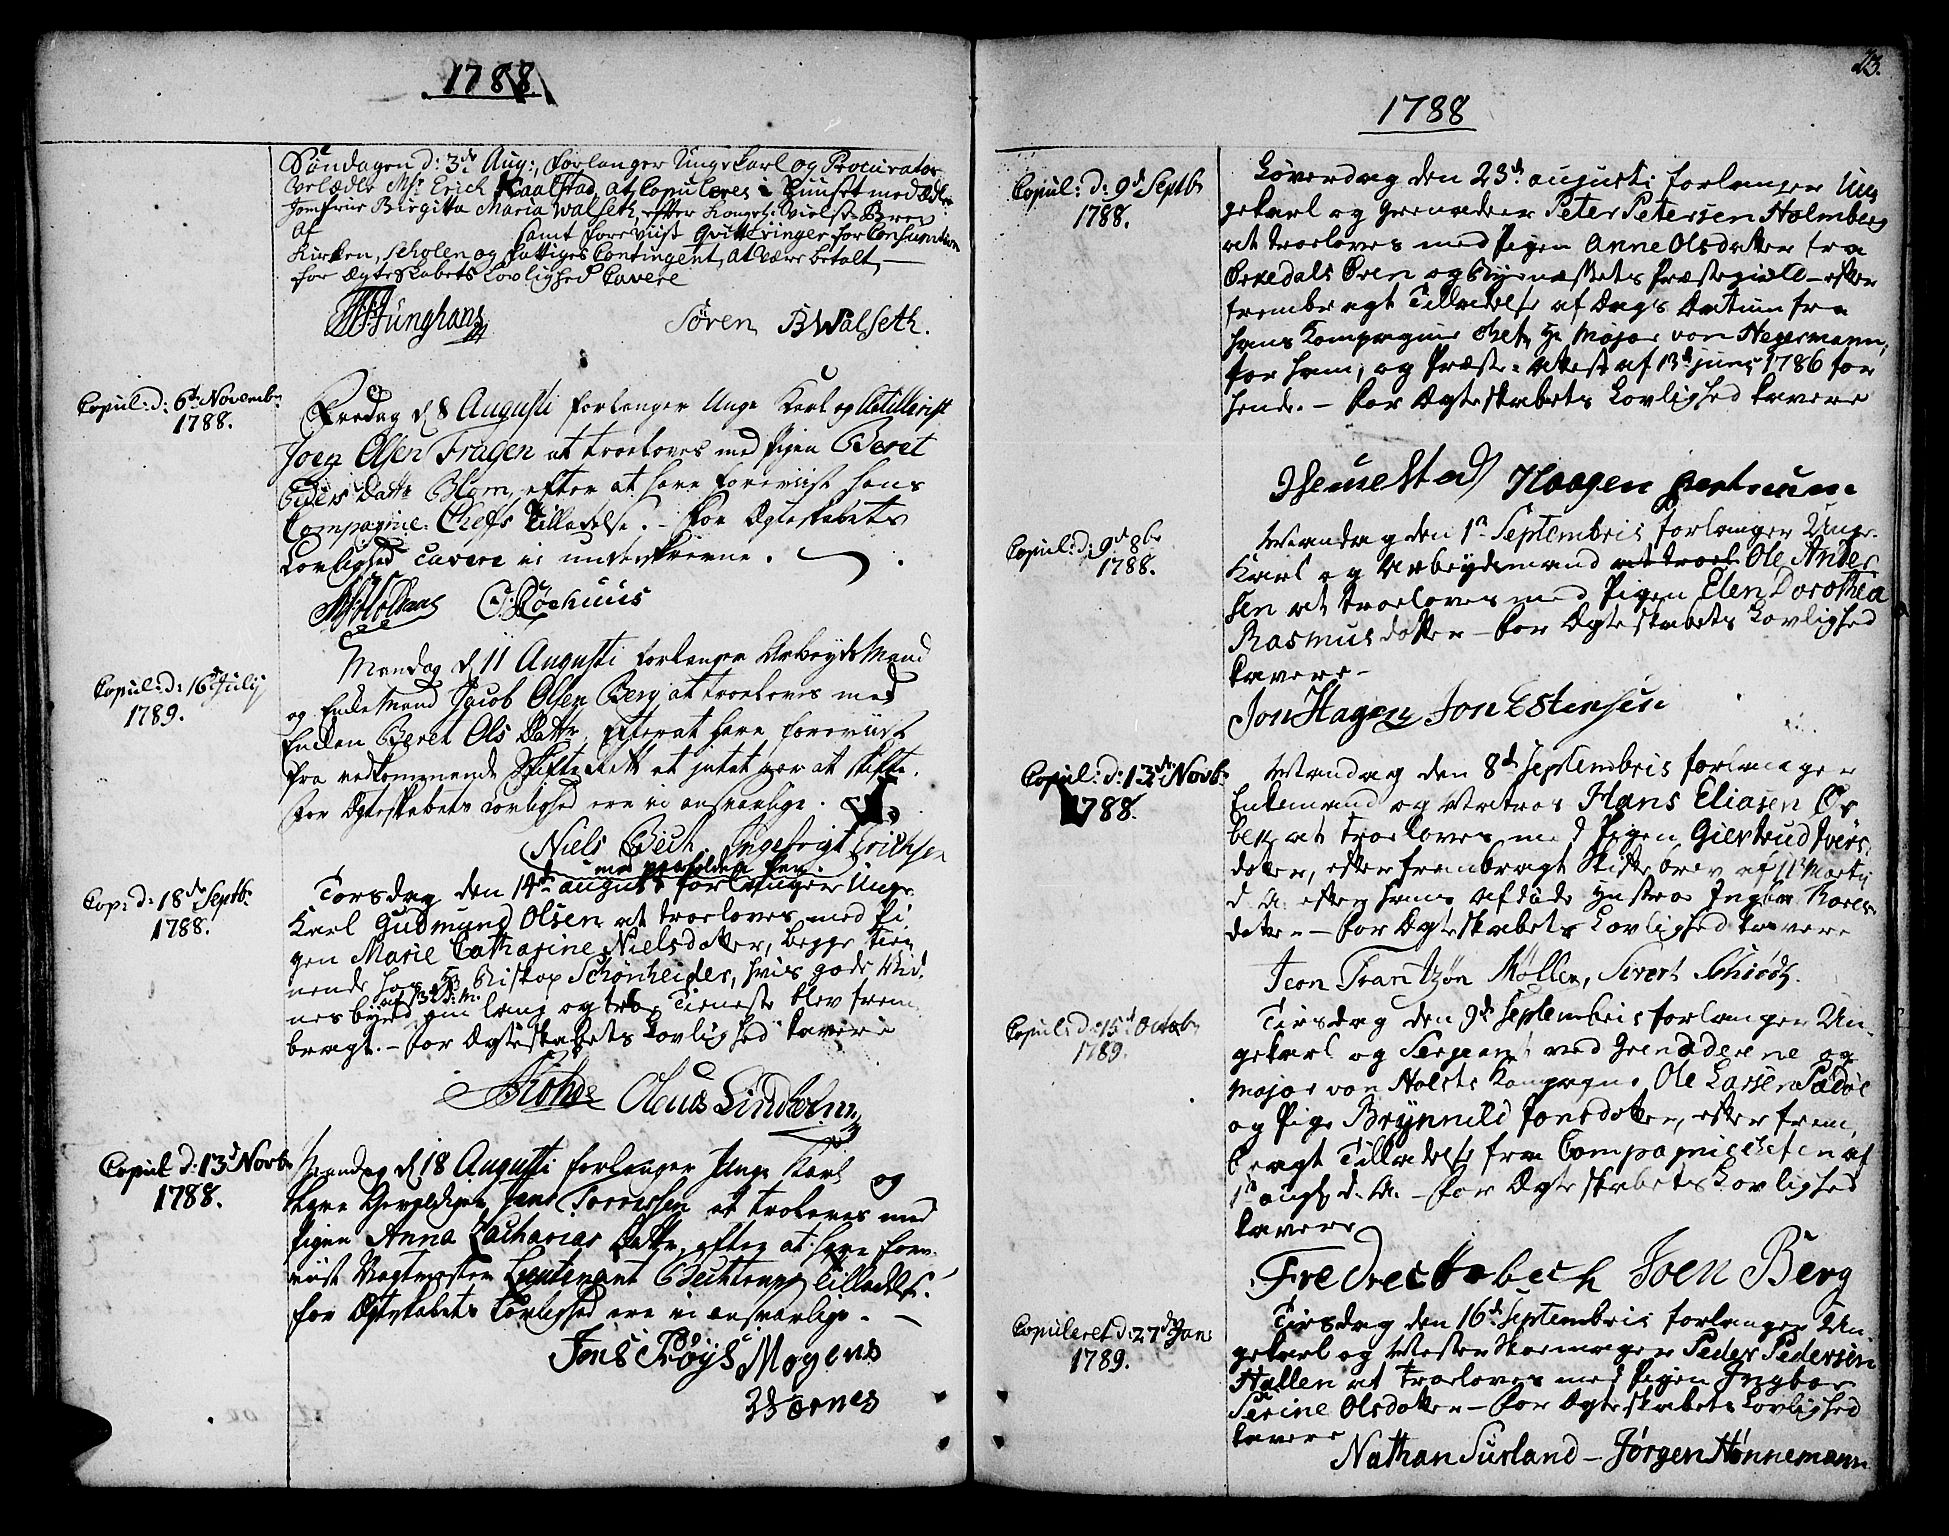 1788
Søndagen d: 3de Aug:, forlanger Ungekarl og Procurator
Velædle Mr Erich Kaalstad, at Copuleres i Huuset med Ædle
Jomfrue Birgitta Maria Walseth, efter Kongel: Vielse Brev
af samt foreviist Qvitteringer for Consumtion
Kirken, Scholen og Fattiges Contingent, at være betalt, —
for Ægteskabets Lovlighed Cavere
Junghans Søren B Walseth.
Copul: d: 6te Novembr
1788.
Fredag d 8 Augusti forlanger Unge Karl og Artillerist
Joen Olsen Fragen at troeloves med Pigen Beret
Eliers Datter Blom, efter at have foreviist hans
Compagnie Chefs Tilladelse. – For Ægteskabets
Lovlighed cavere vi underskrevne.
Holtens C: Rochuus
Copul: d: 16 Julij
1789.
Mandag d 11 Augusti forlanger Arbeyds Mand
og Enke Mand Jacob Olsen Berg at troeloves med
Enken Beret Ols Datter, Efter at have foreviist
fra vedkommende Skifte Rett at intet var at skifte.
For Ægteskabets Lovlighed ere vi ansvarlige.
Niels Bech Ingebrigt Erichsen
med paaholden Pen.
Cop: d: 18de Septbr
1788.
Torsdag den 14de august forlanger Unge
Karl Gudmund Olsen at troeloves med Pi
gen Marie Catharine Nielsdatter, begge tien
nende hos Hr Biskop Schønheider, hvis gode Vid,
af 13 d: M.
nesbyrd om lang og troe Tieneste blev frem
bragt. – For Ægteskabets Lovlighed kavere
Rohde Oluus Lindholm
Copul d: 13de Novb
1788.
Mandag d 18 Augusti forlanger Unge Karl og
Jens Torressen at troloves med
Pigen Anna Zacharias Datter, efter at have fore-
viist Vagtmester Lieutenant Bechtrups tilladelse.
for Ægteskabets Lovlighed ere vi ansvarlige. –
Jens Røys Mogens
Wærnes
23.
1788
Copul: d: 9de Septbr
1788.
Løverdag den 23de augusti forlanger Un
gekarl og Grenadeer Peter Petersen Holmberg
at troeloves med Pigen Anne Olsdatter fra
Ørkedals Øren og Byenæssets Præstegield – efter
frembragt Tilladelse af Dags Datum fra
hans Kompagnie Chef Hr Major von Hegermann,
for ham, og Præste-Attest af 13de junj 1786 for
hende. – For Ægteskabets Lovlighed kavere
Hemelstad Haagen
Copul: d: 9de 8br
1788.
Mandag den 1te Septembris forlanger Unge-
Karl og Arbeydsmand at troel Ole Ander
sen at troeloves med Pigen Elen Dorothea
Rasmus datter – For Ægteskabets Lovlighed
kavere –
Jon Hagen Jon Estensen
Copul: d: 13de Novbr
1788.
Mandag den 8de Septembris forlanger
Enkemand og Matros Hans Eliasen Ør
beck at troeloves med Pigen Giertrud Ivers-
datter, efter frembragt Skiftebrev af 11 Martij
d. A. efter hans afdøde Hustroe Ingbor Kores-
datter – For Ægteskabets Lovlighed kavere
Jeon Frantzøn Møller, Sivert Schiødt.
Copul: d: 15de Octobr
1789.
Tirsdag den 9de Septembris forlanger Un-
gekarl og Sergeant ved Grenaderene og
Major von Holsts Kompagnie Ole Larsen Sadøe
og Pige Brynnild Jonsdatter, efter frem,
bragt Tilladelse fra Compagniechefen af
1te augst d. A. – For Ægteskabets Lovlighed
kavere
Fredrec Høbech Joen Berg
Copuleret d: 27de Jan:
1789.
Tirsdag den 16de Septembris forlanger Un-
gekarl og Mester Skoemager Peder Pedersen
Hallen at troeloves med Pigen Ingbor
Serine Olsdatter – For Ægteskabets Lovlighed
kavere
Nathan Surland – Jørgen Hønnemann